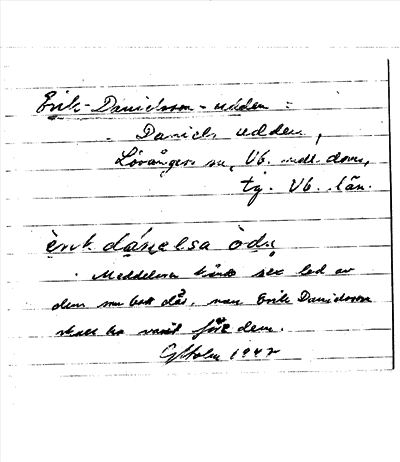 Erik-Danielsson-udden :
Daniels udden,
Lövångers sn, Vb. nedl. doms,
tg. Vb. län.
èrik dánıelsa òdn
Meddelaren känt sex led av
dem som bott där, men Erik Danielsson
skall ha varit före dem.
G Holm 1942